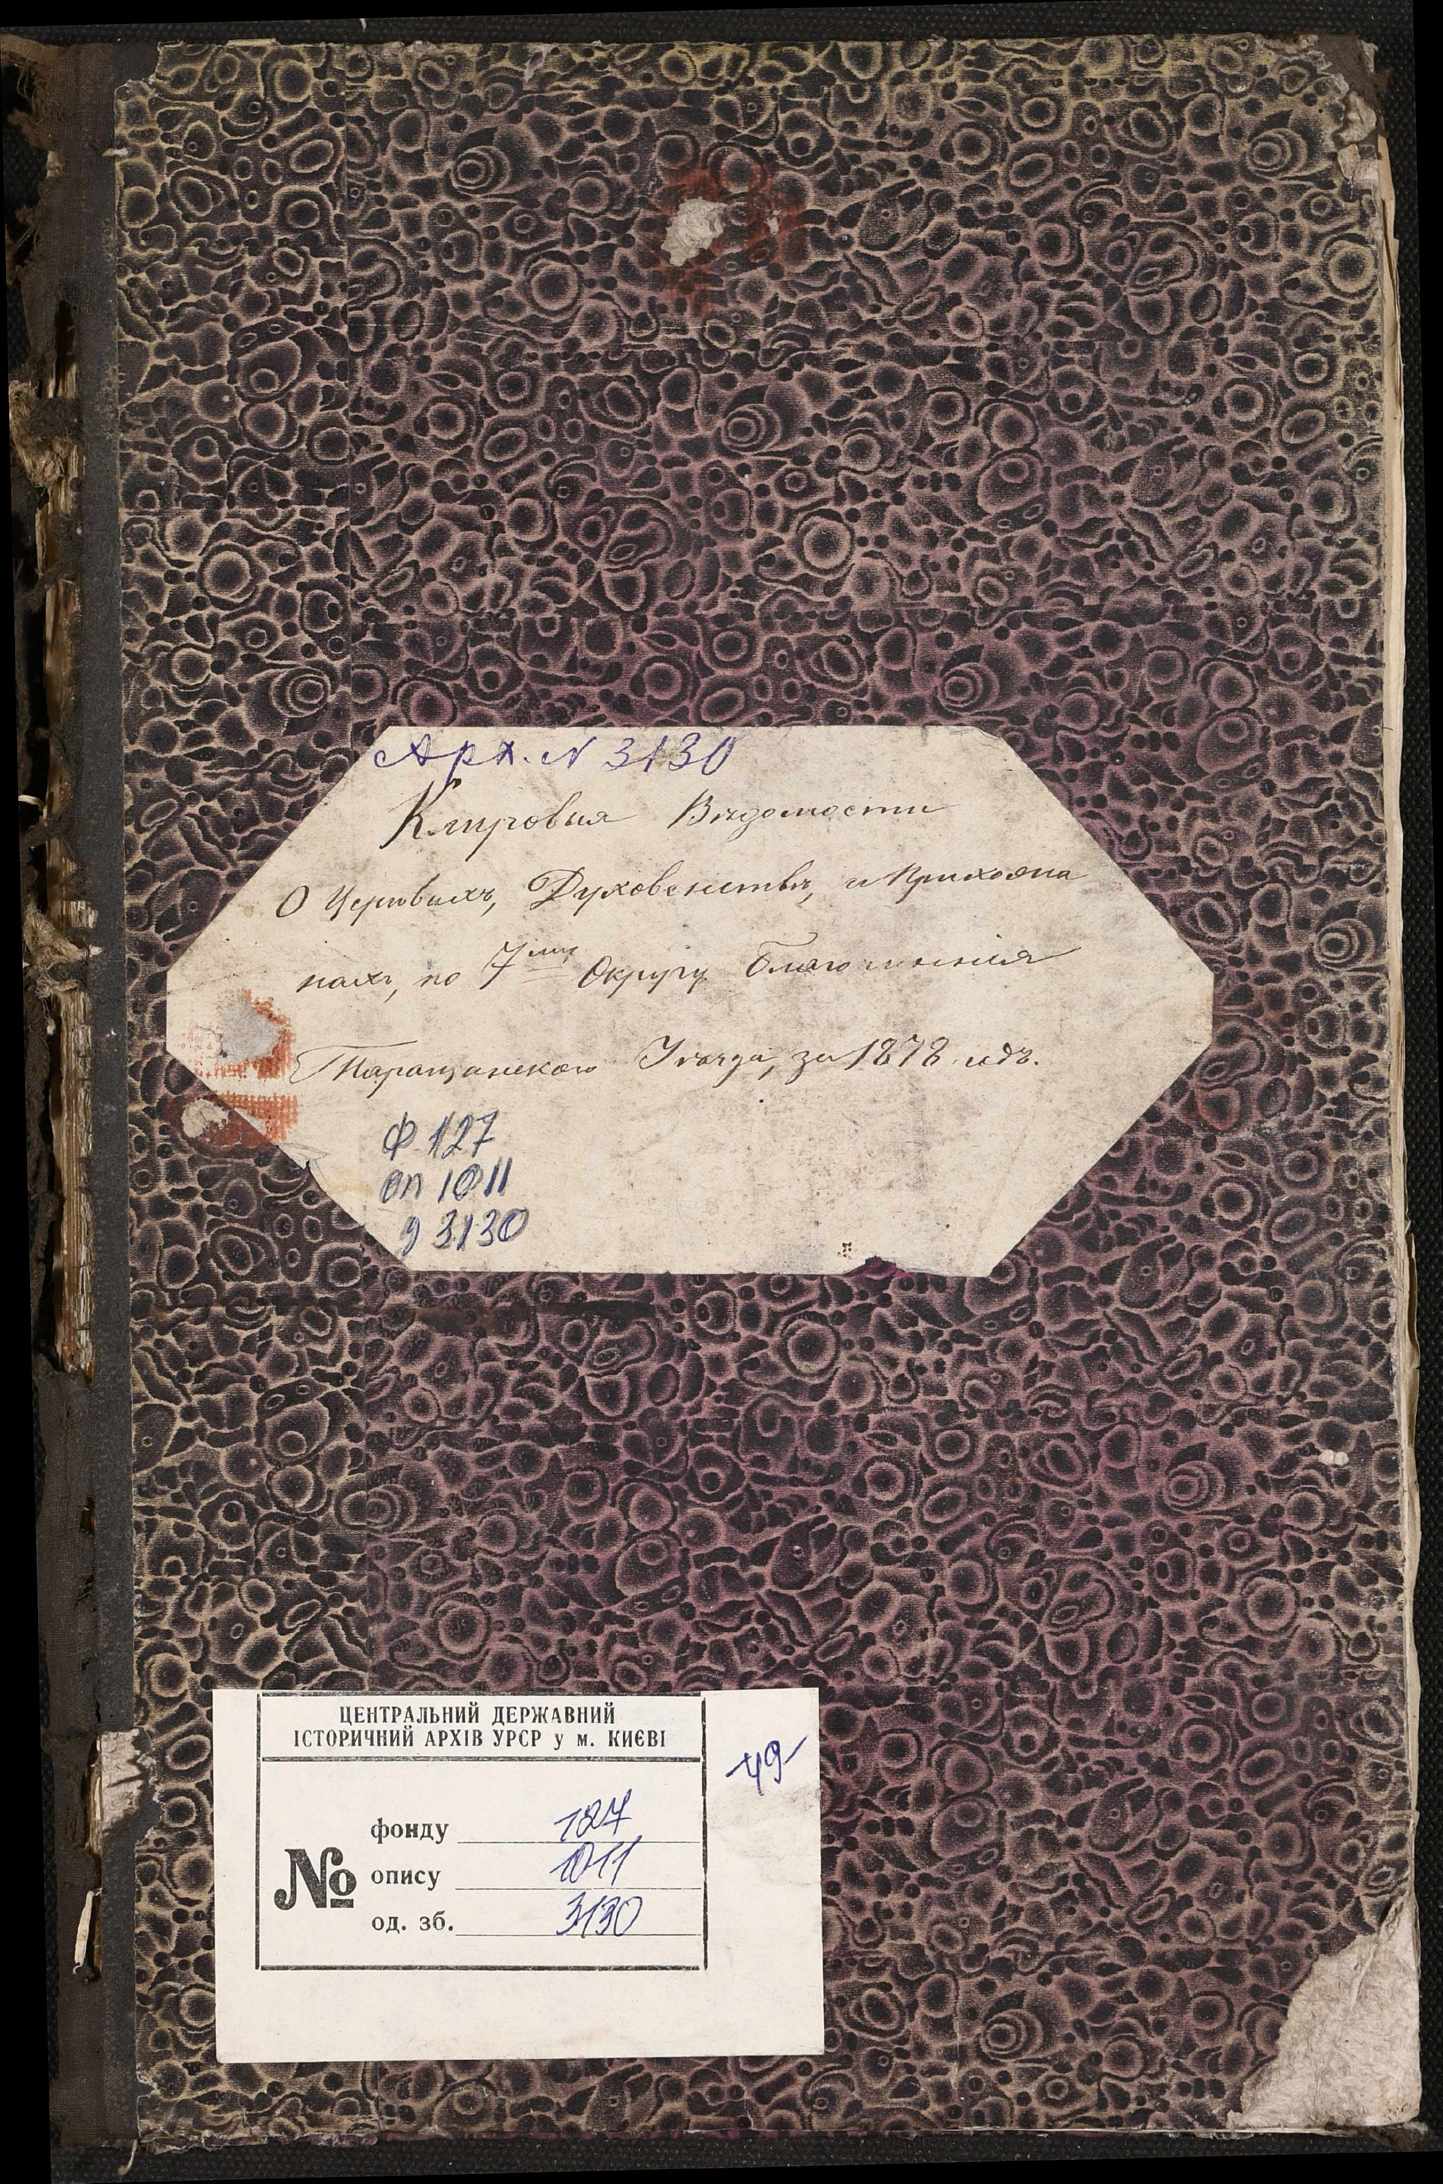 Арх. N 3130
Клировыя Вѣдомости
О Церквахъ, Духовенствѣ, и Прихожа
нахъ, по 7му Округу Благочинія
Таращанскаго Уѣзда, за 1878 годъ.
Ф 127
оп 1011
д 3130
ЦЕНТРАЛЬНИЙ ДЕРЖАВНИЙ
ІСТОРИЧНИЙ АРХІВ УРСР у м. КИЄВІ
49
№
фонду 127
опису 1011
од. зб. 3130